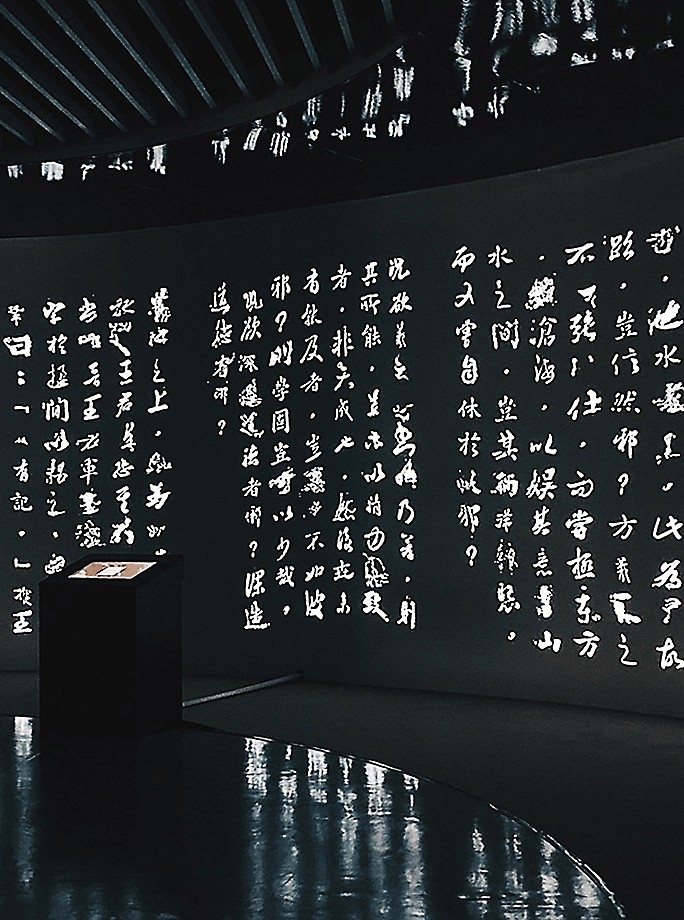 。池水盡黑。此為其故
跡。豈信然邪?方羲之之
不可强以仕。而嘗極東方
。出滄海。以娛其意於山
水之間。豈其徜徉肆恣。
而又嘗自休於此邪?
況欲羲之書晚乃善。則
其所能。蓋亦以精力自致
者。非天成也。然後世未
有能及者。豈其學不如彼
邪?則學固豈可以少哉。
況欲深造道德者邪?深造
道德者邪?
墨池之上。今為州
教授王君盛恐
書晉王右軍墨
字於楹間以揭之。又
鞏曰:「願有記。」推王